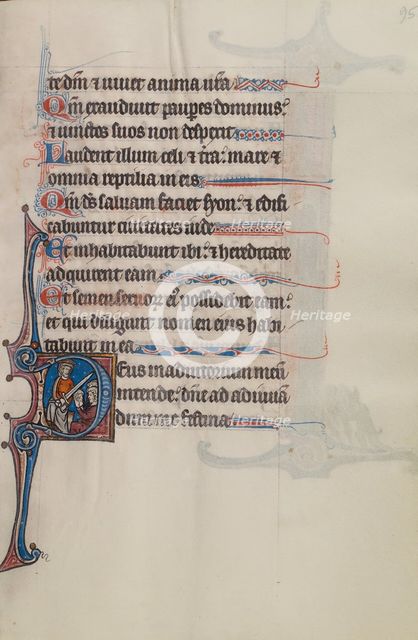 95
te dm̄ ⁊ viuet anima vr̄a
Qm̄ exaudiuit paupes dominus:
⁊ uinctos suos non despexit
Laudent illum celi ⁊ tr̄a: mare ⁊
omnia reptilia in eis
Qm̄ ds̄ saluam faciet syon: ⁊ edifi
cabuntur ciuitates iude
Et inhabitabunt ibi: ⁊ hereditate
adquirent eam
Et semen seruor̄ ei' possidebit eam:
et qui diligunt nomen eius habi
tabunt in ea
Deus in adiutorium meū
intende: dn̄e ad adiuuā
dum me festina
Heritage
Heritage
Heritage
Heritage
Heritage
Heritage